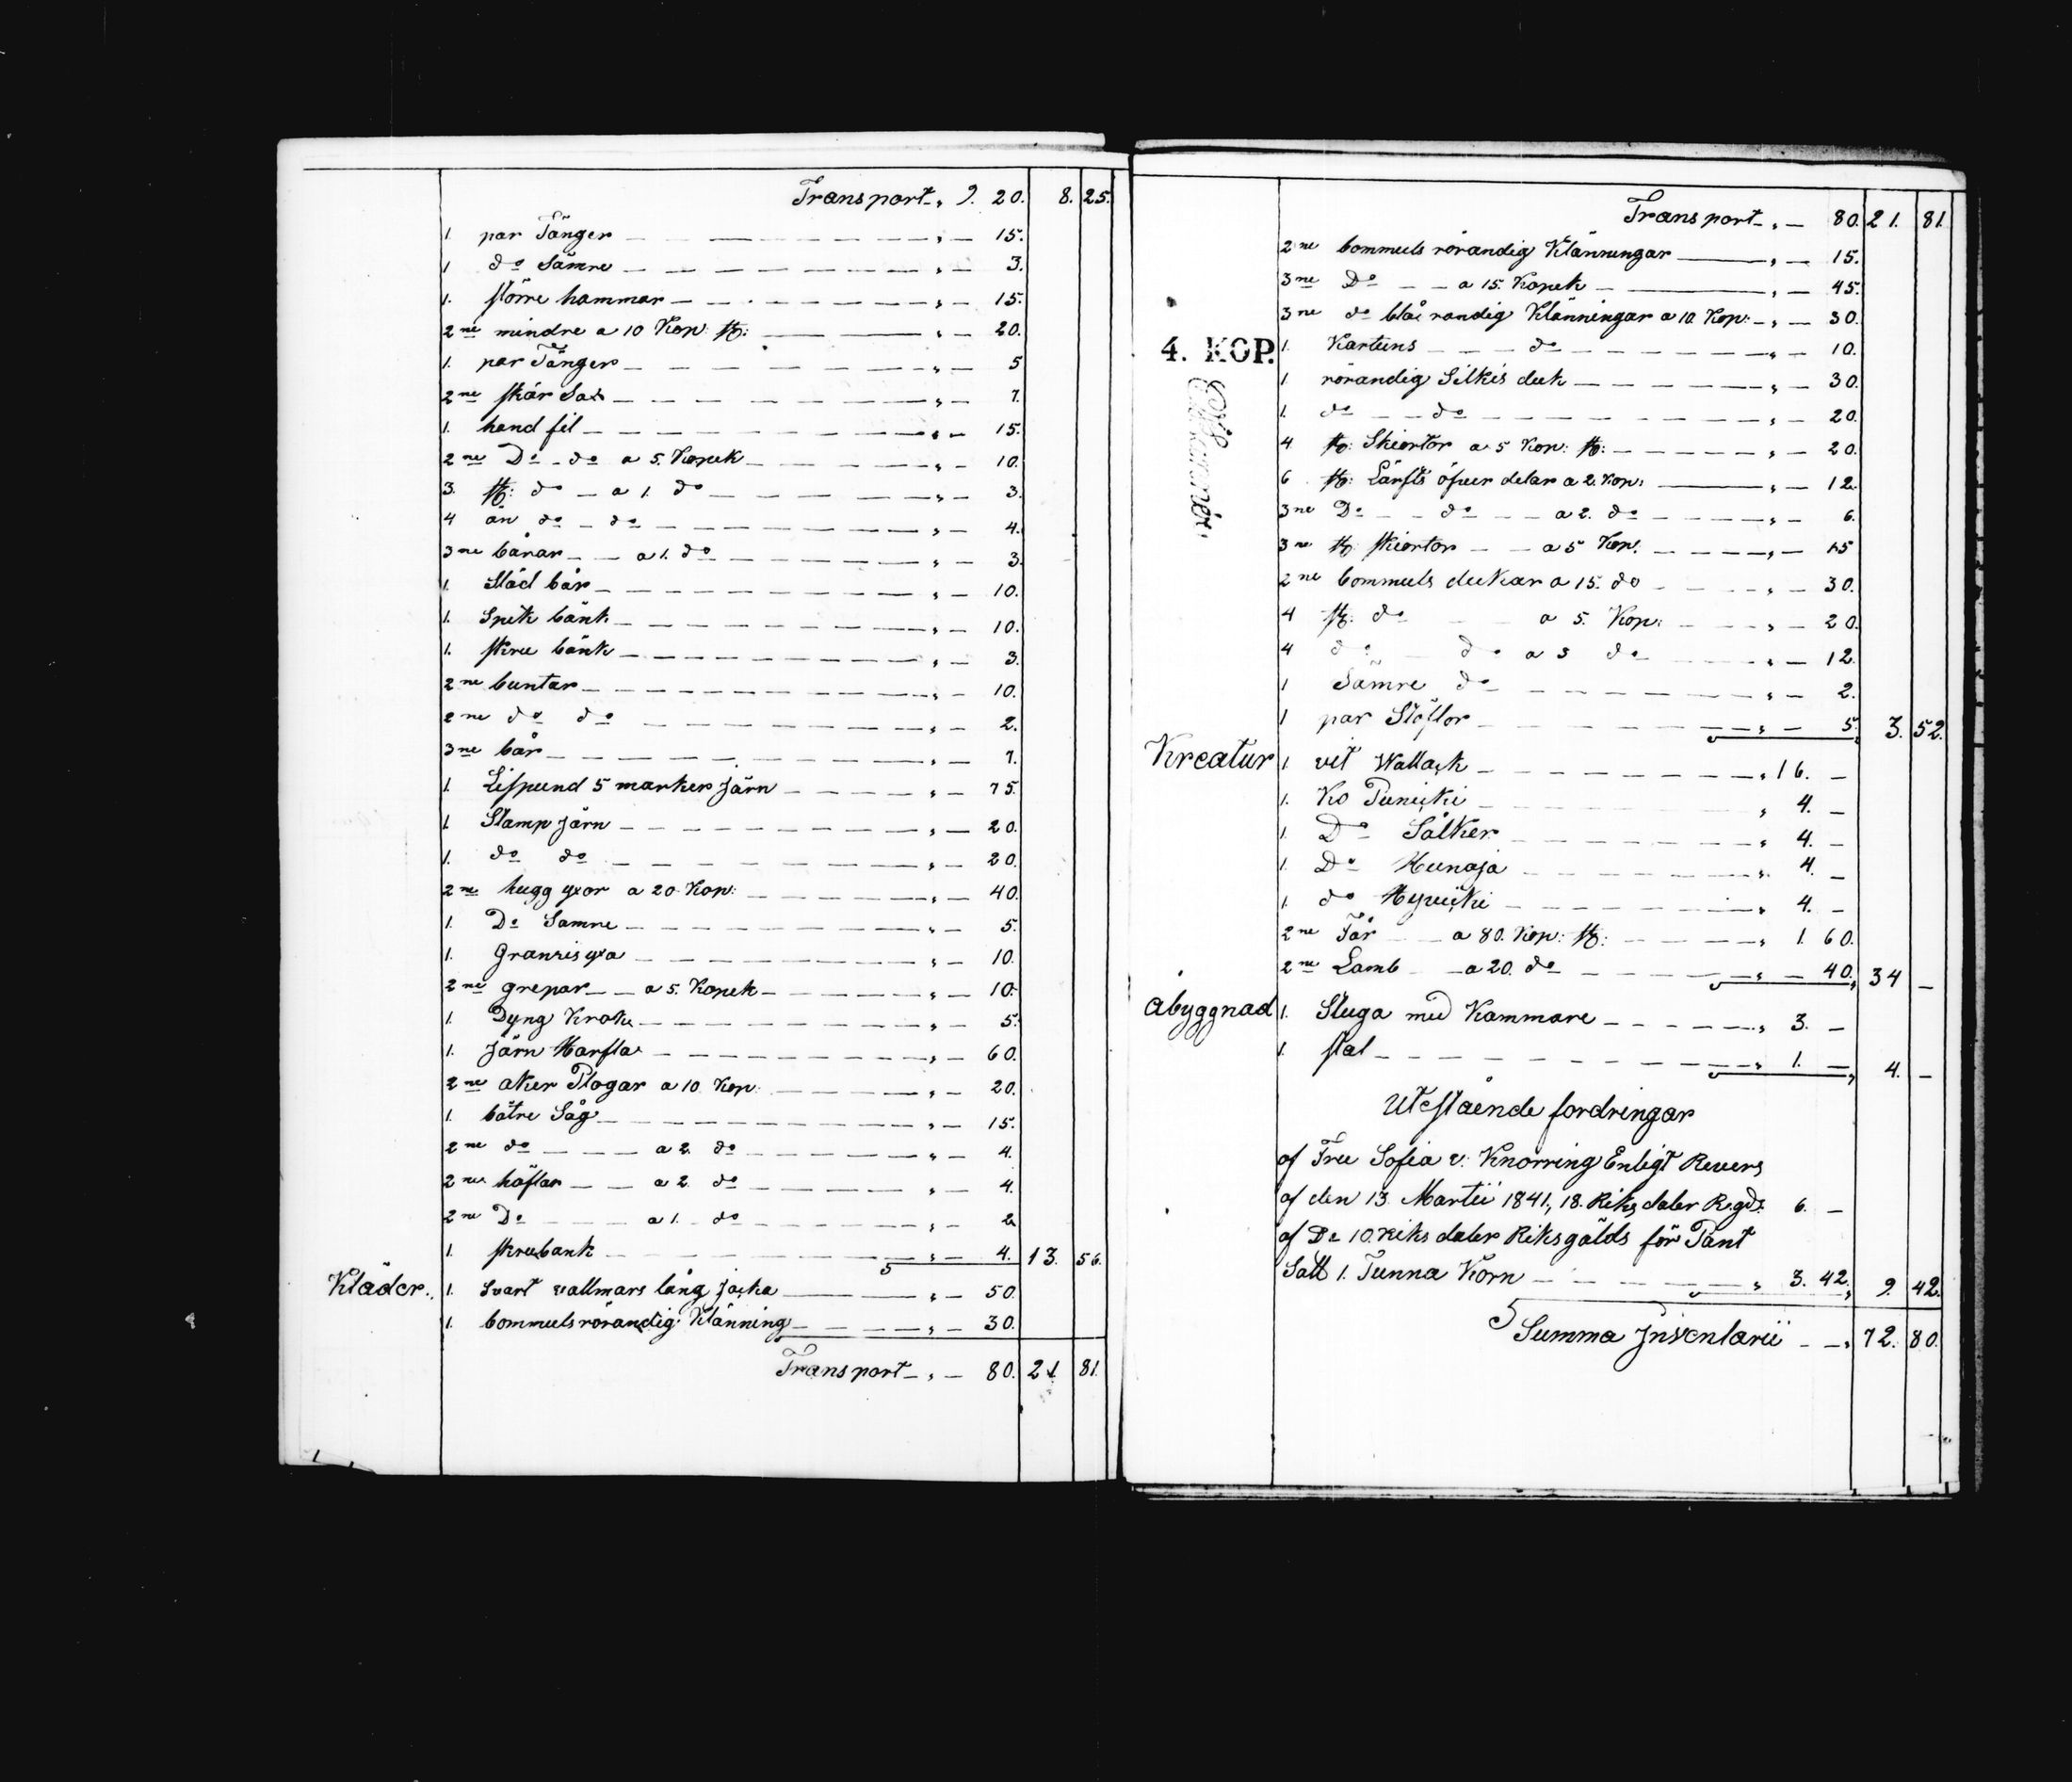 Transport „ 9. 20. 8. 25.
1. par Tänger „ — 15.
1 do Sämre „ — 3.
1. större hammar „ — 15.
2ne mindre a 10 Kop: st: „ — 20.
1. par Tänger „ — 5
2ne skär Sax „ — 7.
1. hand fil „ — 15.
2ne Do do a 5. Kopek „ — 10.
3. st: do a 1. do „ — 3.
4 än do do „ — 4.
3ne bårar a 1. do „ — 3.
1. Städ bår „ — 10.
1. Spik bänk „ — 10.
1. skru bänk „ — 3.
2ne buntar „ — 10.
2ne do do „ — 2.
3ne bår „ — 7.
1. Lispund 5 marker Järn „ — 75.
1 Stamp Järn „ — 20.
1. do do „ — 20.
2ne hugg yxor a 20 Kop: „ — 40.
1. Do Samre „ — 5.
1. Granris yxa „ — 10.
2ne grepar a 5. Kopek „ — 10.
1. Dyng Krok „ — 5.
1. Järn Harfla „ — 60.
2ne åker Plogar a 10 Kop: „ — 20.
1. bätre Såg „ — 15.
2ne do a 2. do „ — 4.
2ne höflar a 2 do „ — 4.
2ne Do a 1. do „ — 2
1. skrubank „ — 4. 13. 56.
Kläder. 1. Svart vallmars lång Jacka „ — 50.
1. bommuls rörandig Klänning „ — 30.
Transport „ — 80. 21. 81.
Transport „ — 80. 21. 81.
2ne bommuls rörandig Klänningar „ — 15.
3ne Do a 15. Kopek „ — 45.
3ne do blå randig Klänningar a 10. Kop: „ — 30.
4. KOP.
1. Kartuns do „ — 10.
1 rörandig Silkis duk „ — 30.
1. do do „ — 20.
4 st: Skiortor a 5 Kop: st: „ — 20.
6 st: Lärfts öfver delar a 2 Kop: „ — 12.
3ne Do do a 2. do „ — 6.
3ne st: skiortor a 5 Kop: „ — 15
2ne bommuls dukar a 15. do „ — 30.
4 st: do a 5. Kop: „ — 20.
4 do do a 3 do „ — 12.
1 Sämre do „ — 2.
1 par Stöflor „ — 5. 3. 52.
Kreatur 1 vit Wallack „ 16. —
1. Ko Punicki „ 4. —
1. Do Sålker „ 4. —
1. Do Hunaja „ 4. —
1 do „ 4. —
2ne Får a 80. Kop: st: „ 1. 60.
2ne Lamb a 20. do „ — 40. 34 —
Åbyggnad 1. Stuga med Kammare „ 3. —
1. stal „ 1. — 4. —
Utestående fordringar
af Fru Sofia v: Knorring Enligt Revers
af den 13. Martii 1841, 18. Riks daler Rgds. 6. —
af Do 10 riks daler Riksgälds för Pant
Satt 1. Tunna Korn „ 3. 42. 9. 42.
Summa Inventarii „ 72. 80.